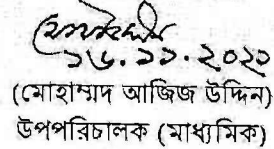 ১৬.১১.২০২১
(মোহাম্মদ আজিজ উদ্দিন)
উপপরিচালক (মাধ্যমিক)